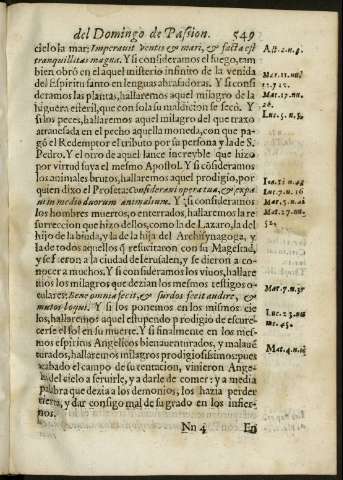 del Domingo de Passion. 549
cielo la mar; Imperauit ventis & mari, & facta est
tranquillitas magna. Y si consideramos el fuego, tam
bien obrò en el aquel misterio infinito de la venida
del Espiritu santo en lenguas abrasadoras. Y si consi
deramos las plantas, hallaremos aquel milagro de la
higuera esteril, que con sola su maldicion se secò. Y
si los peces, hallaremos aquel milagro del que traxo
atrauesada en el pecho aquella moneda, con que pa-
gò el Redemptor el tributo por su persona y la de S.
Pedro. Y el otro de aquel lance increyble que hizo
por virtud suya el mesmo Apostol. Y si consideramos
los animales brutos, hallaremos aquel prodigio, por
quien dixo el Profeta: Consideraui opera tua, & expa
ui in medio duorum animalium. Y si consideramos
los hombres muertos, o enterrados, hallaremos la re
surreccion que hizo dellos, como la de Lazaro, la del
hijo de la biuda, y la de la hija del Archisynagoga, y
la de todos aquellos q̃ resucitaron con su Magestad,
y se fueron a la ciudad de Ierusalen, y se dieron a co-
nocer a muchos. Y si consideramos los viuos, hallare
mos los milagros que dezian los mesmos testigos o-
culares: Bene omnia fecit, & surdos fecit audire, &
mutos loqui. Y si lo ponemos en los mismos cie
los, hallaremos aquel estupendo prodigio de escure-
cerse el sol en su muerte. Y si finalmente en los mes-
mos espiritus Angelicos bienauenturados, y malauẽ
turados, hallaremos milagros prodigiosissimos: pues
acabado el campo de su tentacion, vinieron Ange-
les del cielo a seruirle, y a darle de comer: y a media
palabra que dezia a los demonios, los hazia perder
tierra, y dar consigo mal de su grado en los infier-
nos.
Nn 4 En
Act. 2. n. 4.
Mat. 17. nu.
Luc. 5. n. 5.
Luc. 7. n. 16
Mat. 27. nu.
52.
Mar. 7. n. 37
Luc. 23. nu
45.
Mat. 4. n. 11